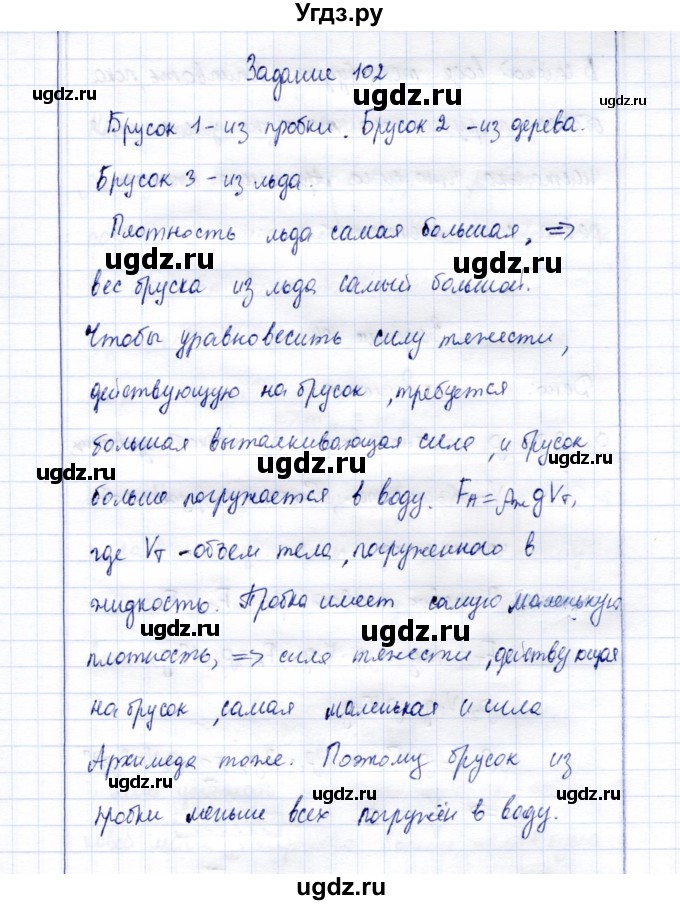 Угдз.ру
Задание 102
ugdz.ru ugdz.ru ugdz.ru
Брусок 1 - из пробки. Брусок 2 - из дерева.
Брусок 3 - из льда.
Плотность льда самая большая, =>
ugdz.ru ugdz.ru
вес бруска из льда самый большой.
Чтобы уравновесить силу тяжести,
действующую на брусок, требуется
большая выталкивающая сила, и брусок
ugdz.ru ugdz.ru ugdz.ru
больше погружается в воду. Fа = ρж g Vт,
где Vт - объем тела, погруженного в
жидкость. Пробка имеет самую маленькую
ugdz.ru ugdz.ru
плотность, => сила тяжести, действующая
на брусок, самая маленькая и сила
Архимеда тоже. Поэтому брусок из
ugdz.ru ugdz.ru ugdz.ru
пробки меньше всех погружён в воду.
ugdz.ru